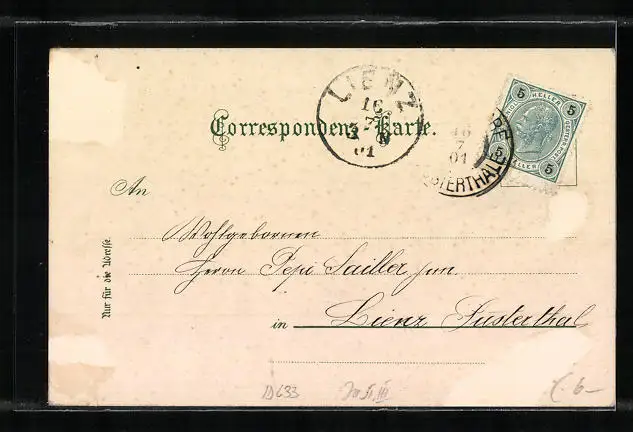 Correspondenz-Karte.
LIENZ
16
7
3 N
01
16
7
01
5 HELLER 5
5 HELLER 5
An
Wohlgebornen
Herrn Pepi Sailler jun.
in Lienz Pusterthal
Nur für die Adresse.
10633